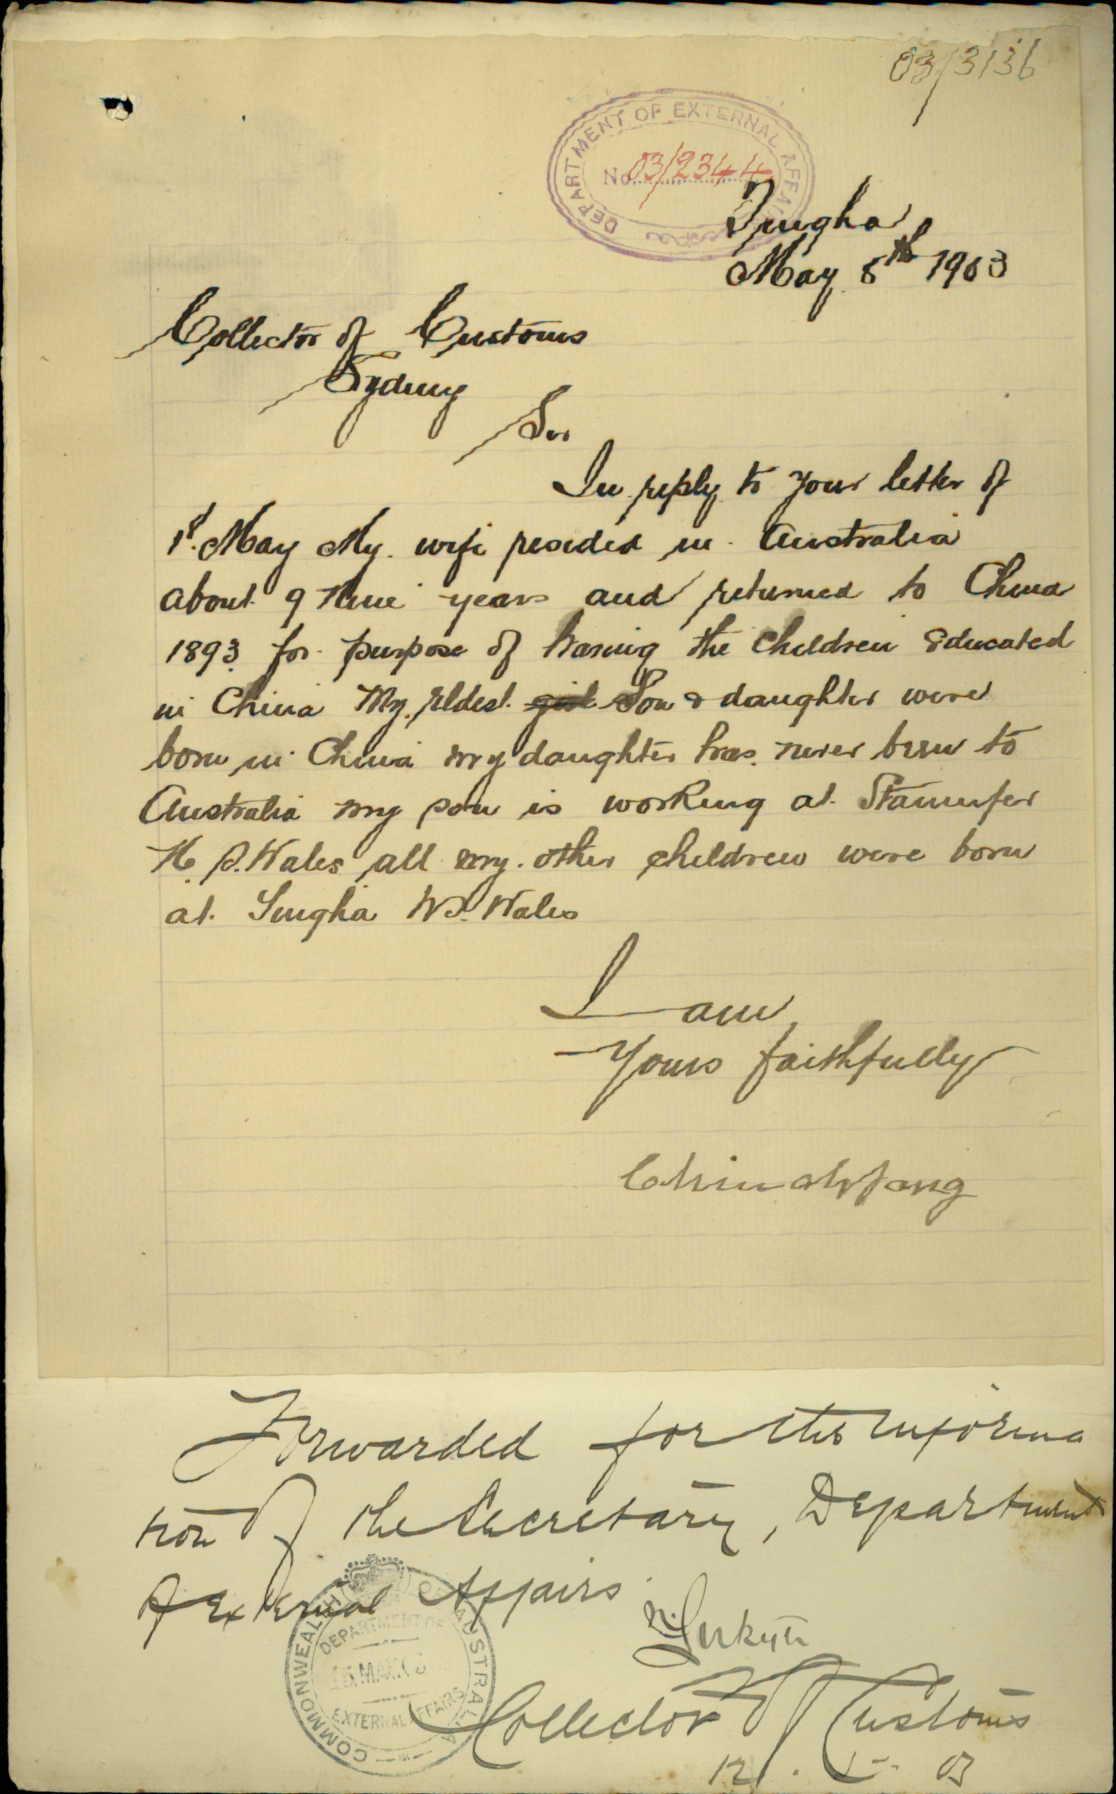 03/3136
DEPARTMENT OF EXTERNAL AFFAIRS
No. 03/2344
Tingha
May 8th 1903
Collector of Customs
Sydney
Sir
In reply to your letter of
1st May My wife resided in Australia
about 9 Nine years and returned to China
1893 for purpose of having the children Educated
in China My Eldest girl Son & daughter were
born in China my daughter has never been to
Australia my son is working at Stannifer
N. S. Wales all my other children were born
at Tingha N S. Wales
I am
Yours faithfully
Chin ah fang
Forwarded for the informa
tion of the Secretary, Department
of External Affairs
COMMONWEALTH OF AUSTRALIA
DEPARTMENT OF
EXTERNAL AFFAIRS
Collector of Customs
12. 5. 03